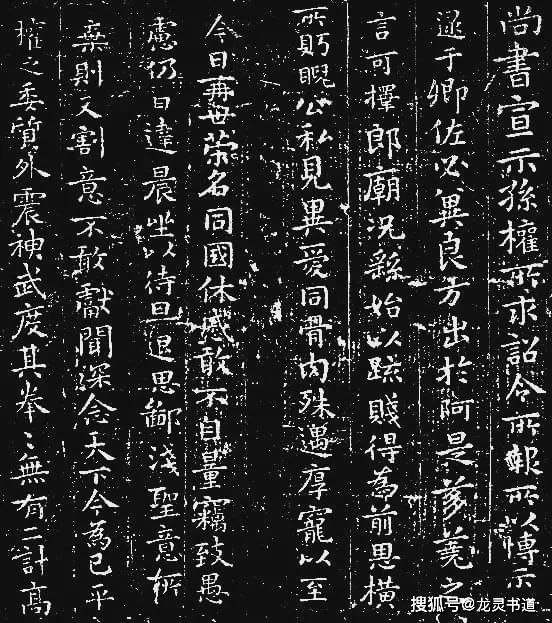 尚書宣示孫權所求詔令所報所以博示
逮于卿佐必冀良方出於阿是芻蕘之
言可擇郎廟況繇始以疏賤得為前恩橫
所眄睨公私見異愛同骨肉殊遇厚寵以至
今日再世榮名同國休慼敢不自量竊致愚
慮仍日達晨坐以待旦退思鄙淺聖意所
棄則又割意不敢獻聞深念天下今為已平
權之委質外震神武度其拳〻無有二計高
搜狐号@龙灵书道